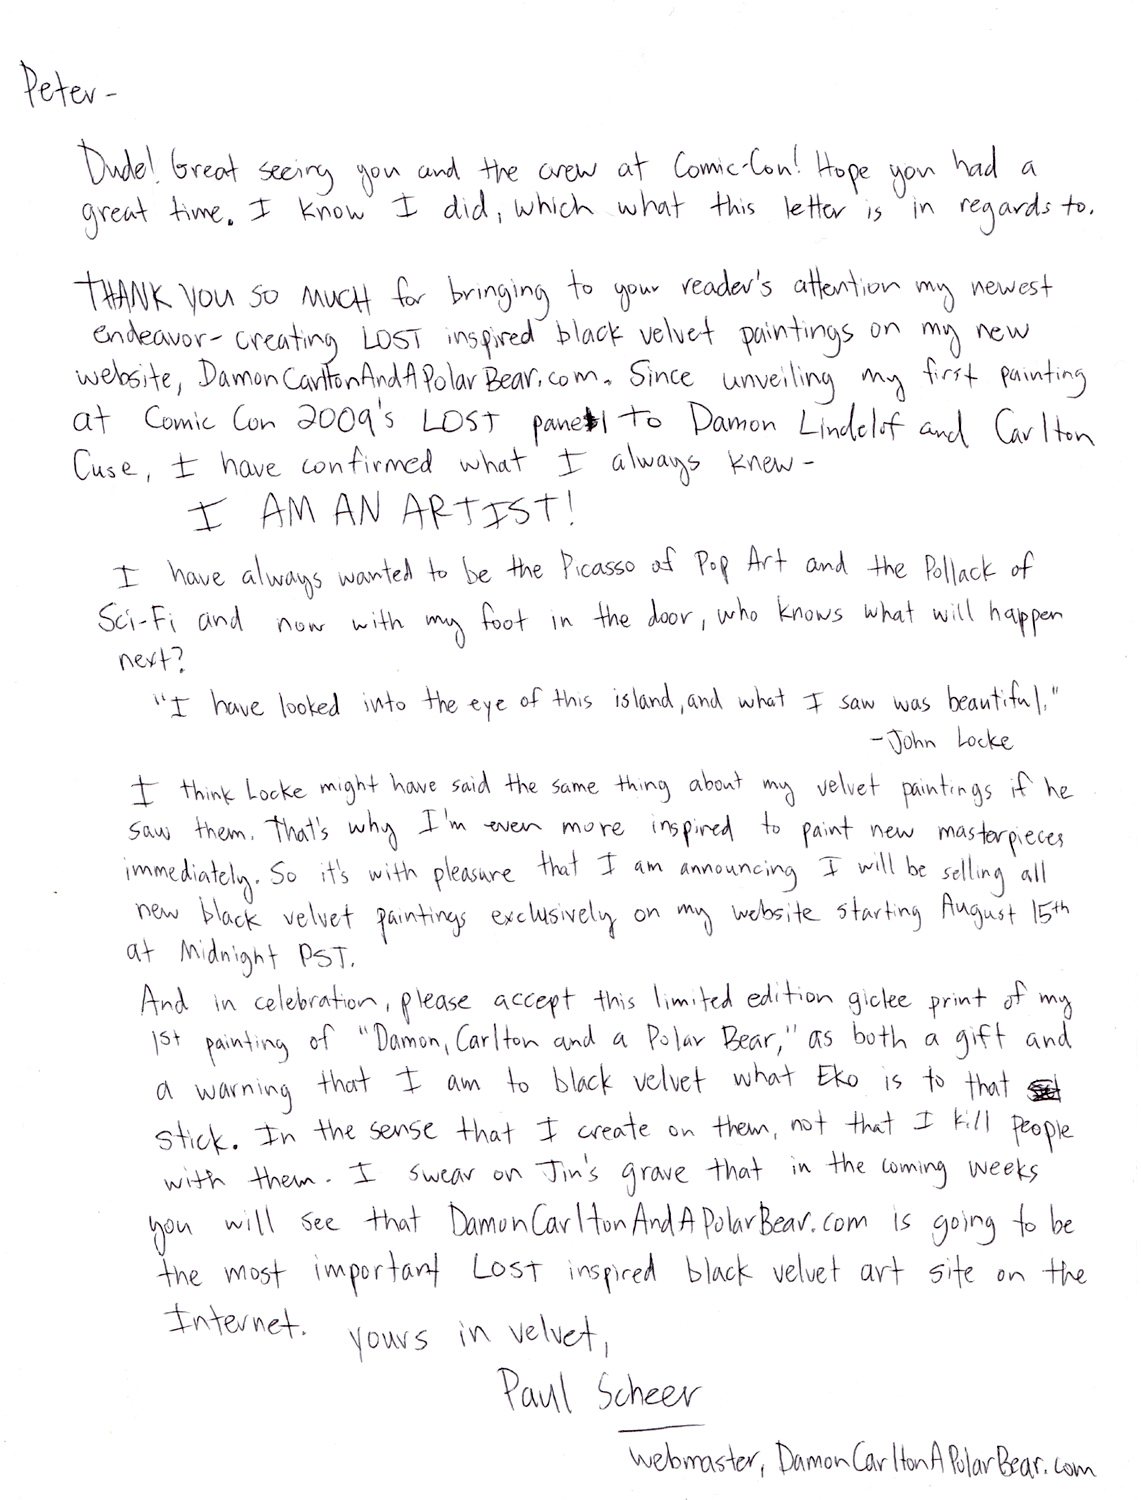 Peter-
Dude! Great seeing you and the crew at Comic-Con! Hope you had a
great time. I know I did, which what this letter is in regards to.
THANK YOU SO MUCH for bringing to your reader's attention my newest
endeavor- creating LOST inspired black velvet paintings on my new
website, DamonCarltonAndAPolarBear.com. Since unveiling my first painting
at Comic Con 2009's LOST panel to Damon Lindelof and Carlton
Cuse, I have confirmed what I always knew-
I AM AN ARTIST!
I have always wanted to be the Picasso of Pop Art and the Pollack of
Sci-Fi and now with my foot in the door, who knows what will happen
next?
"I have looked into the eye of this island, and what I saw was beautiful."
-John Locke
I think Locke might have said the same thing about my velvet paintings if he
saw them. That's why I'm even more inspired to paint new masterpieces
immediately. So it's with pleasure that I am announcing I will be selling all
new black velvet paintings exclusively on my website starting August 15th
at Midnight PST.
And in celebration, please accept this limited edition giclee print of my
1st painting of "Damon, Carlton and a Polar Bear," as both a gift and
a warning that I am to black velvet what Eko is to that
stick. In the sense that I create on them, not that I kill people
with them. I swear on Jin's grave that in the coming weeks
you will see that DamonCarltonAndAPolarBear.com is going to be
the most important LOST inspired black velvet art site on the
Internet.
Yours in velvet,
Paul Scheer
webmaster, DamonCarltonAPolarBear.com